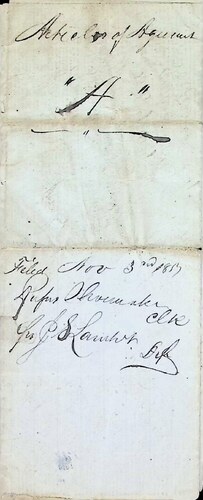 Articles of Agreement
"A"
"
Filed Nov 3rd 1857
Rufus Shoemaker
Clk
Per J S Lambert
Dep